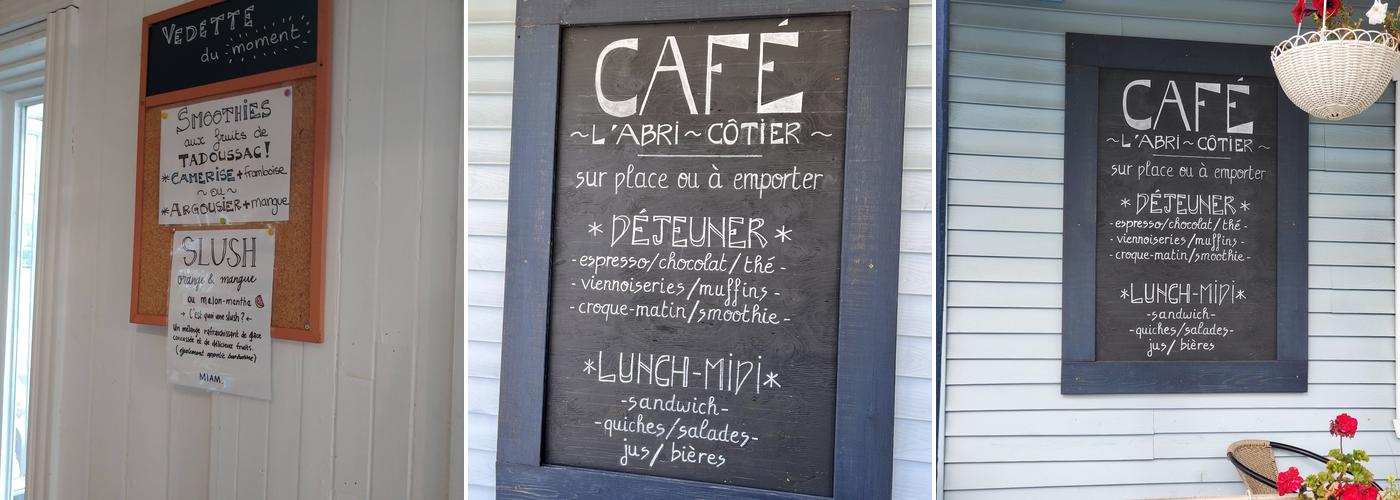 VEDETTE
du moment
SMOOTHIES
aux fruits de
TADOUSSAC!
*CAMERISE+framboise
~ou~
*ARGOUSIER+mangue
SLUSH
orange & mangue
ou melon-menthe
→ C'est quoi une slush? ←
Un mélange rafraichissant de glace
concassée et de délicieux fruits.
(également appelé barbotine)
MIAM.
CAFÉ
~L'ABRI~CÔTIER~
sur place ou à emporter
*DÉJEUNER*
-espresso/chocolat/thé-
-viennoiseries/muffins-
-croque-matin/smoothie-
*LUNCH-MIDI*
-sandwich-
-quiches/salades-
jus/bières
CAFÉ
~L'ABRI~CÔTIER~
sur place ou à emporter
*DÉJEUNER*
-espresso/chocolat/thé-
-viennoiseries/muffins-
-croque-matin/smoothie-
*LUNCH-MIDI*
-sandwich-
-quiches/salades-
jus/bières